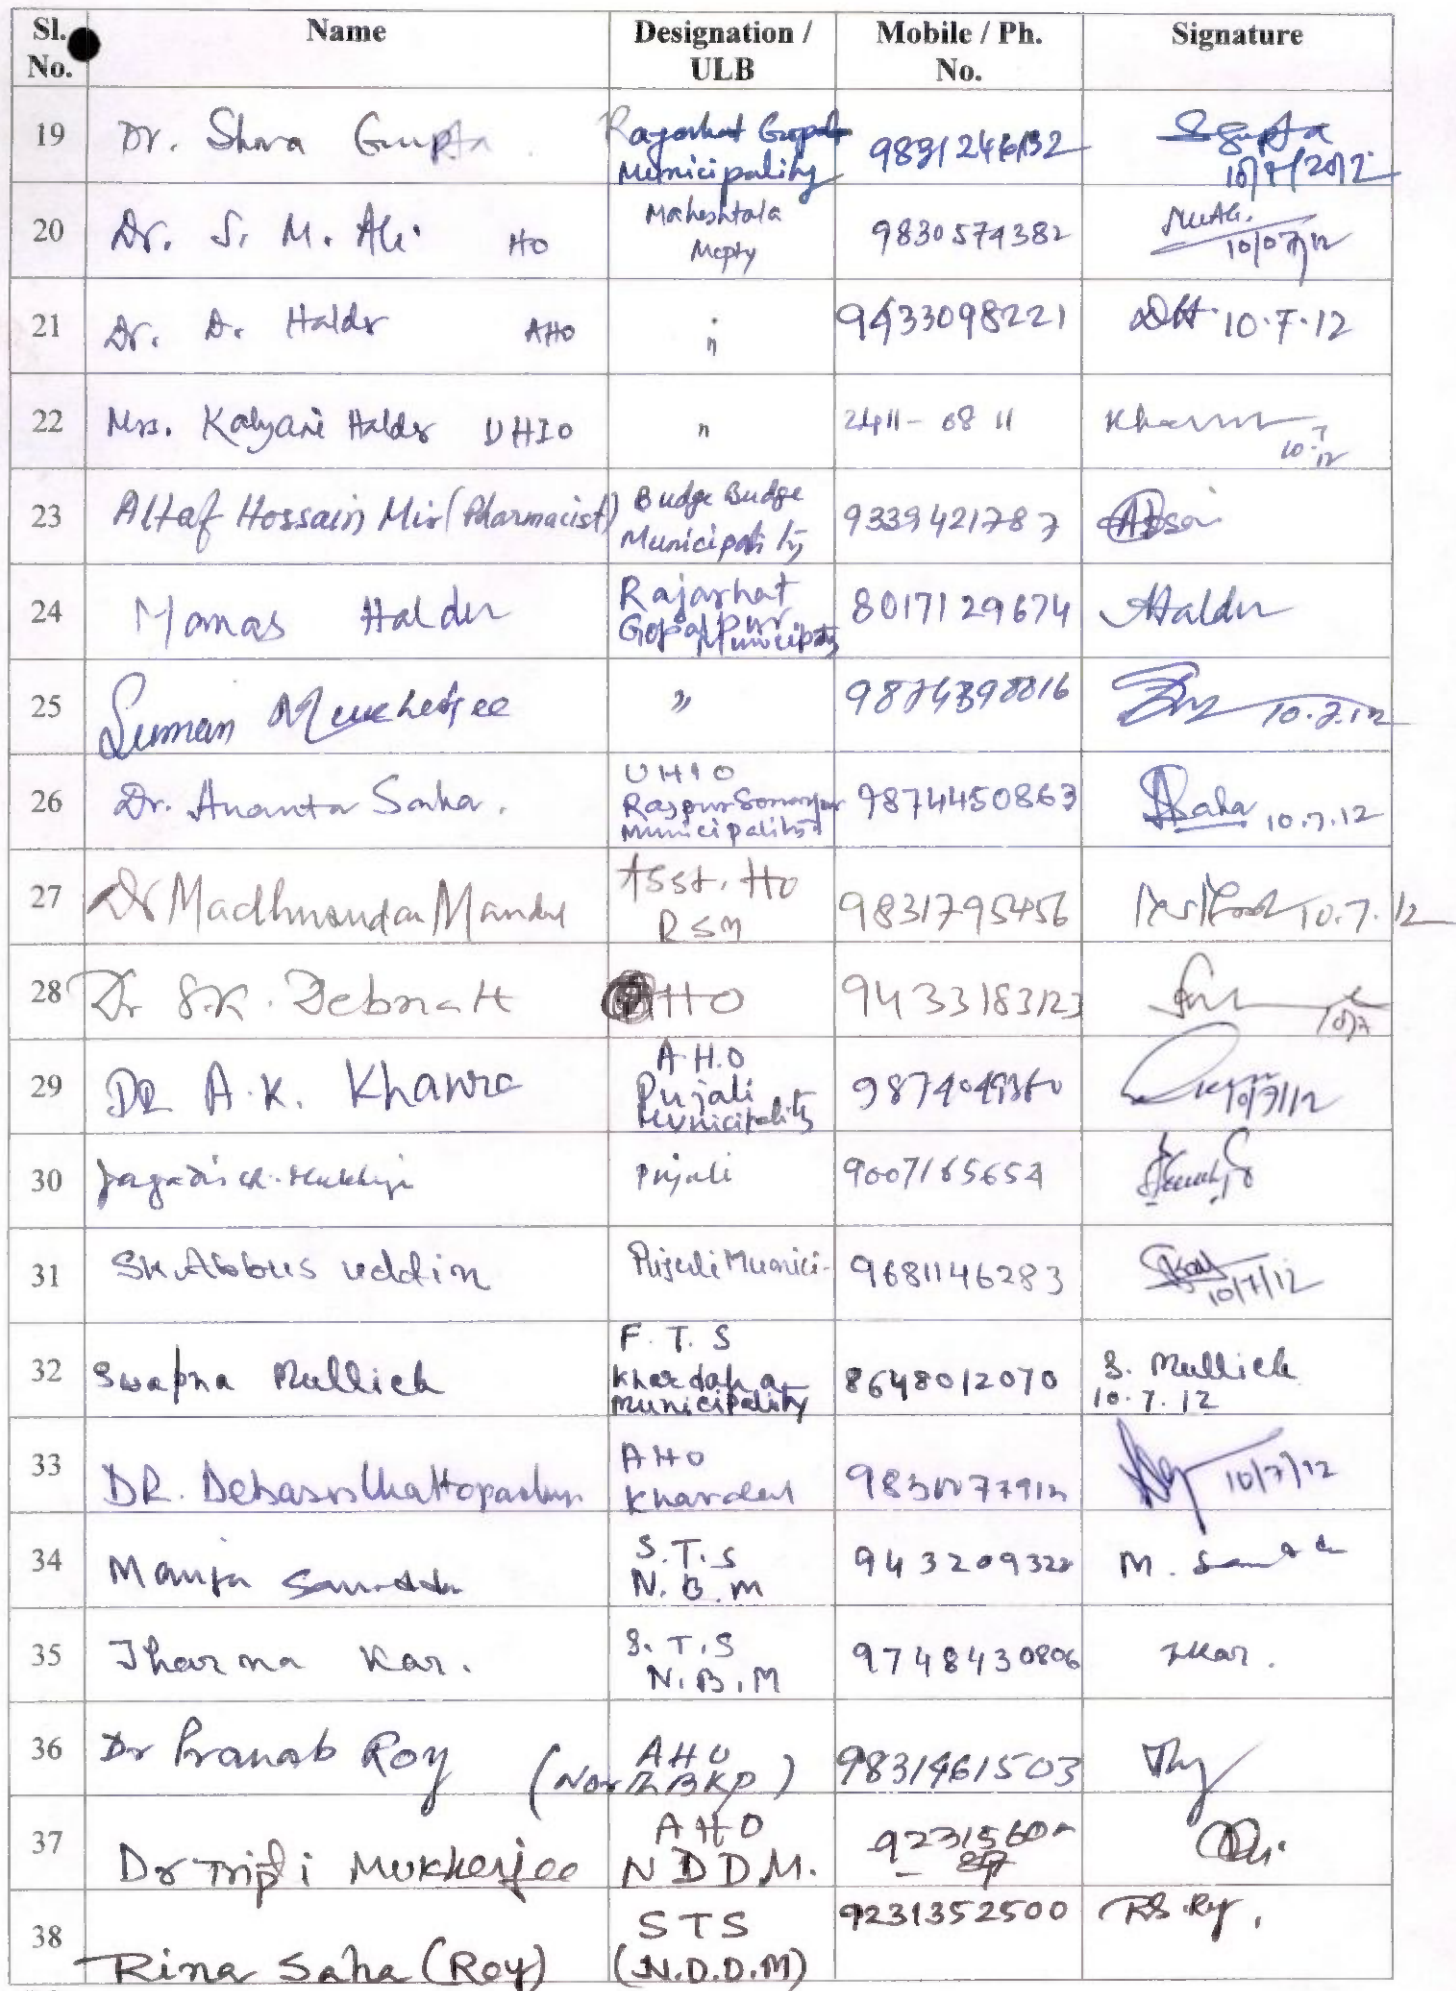 Sl. No. Name Designation / ULB Mobile / Ph. No. Signature
19 Dr. Shova Gupta Municipality 9831246132 SGupta 10/7/2012
20 Dr. S. M. Ali HO Maheshtala Mcpty 9830574382 10/07/12
21 Dr. D. Halder AHO " 9433098221 DH 10.7.12
22 Mrs. Kalyani Halder UHIO " 2411-08 11 10.7.12
23 Altaf Hossain Mir (Pharmacist) Budge Budge Municipality 9339421787
24 Manas Halder Rajarhat Gopalpur Municipality 8017129674 Halder
25 Suman Mukherjee " 10.7.12
26 Dr. Ananta Saha. UHIO Rajpur Sonarpur Municipality 9874450863 ASaha 10.7.12
27 Dr Madhusudan Mandal Asst. HO RSM 9831795456 10.7.12
28 Dr S.K. Debnath HO 9433183123 10/7
29 DR A.K. Khanra A.H.O Pujali Municipality 10/7/12
30 Pujali 9007165654
31 Sk Abbus uddin Pujali Munici- 9681146283 10/7/12
32 Swapna Mullick F.T.S Khardaha Municipality 8648012070 S. Mullick 10.7.12
33 DR. Debasis Chattopadhyay AHO Khardah 10/7/12
34 S.T.S N.B.M M.
35 Jharna Kar. S.T.S N.B.M 9748430806 JKar.
36 Dr Pranab Roy AHO (North BKP) 9831461503
37 Dr Tripti Mukherjee AHO N D D M.
38 Rina Saha (Roy) STS (N.D.D.M) 9231352500 RS Roy.